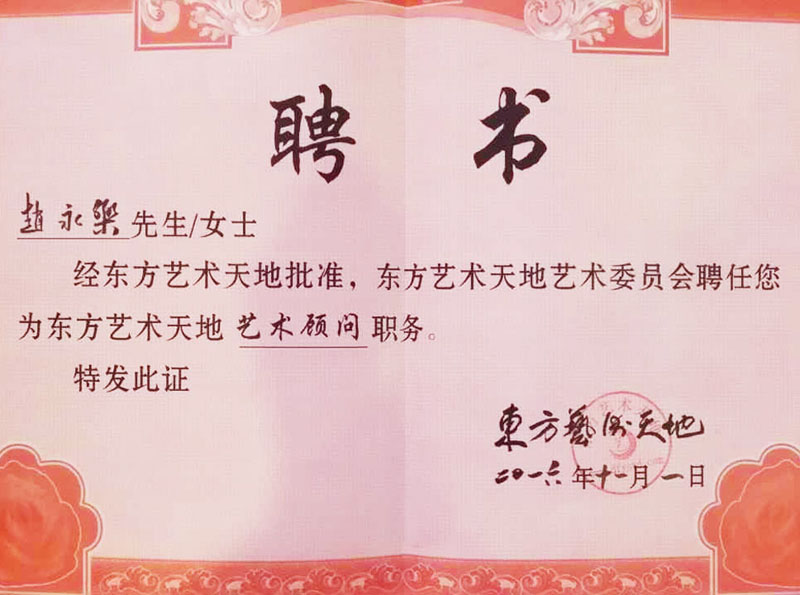 聘书
趙永樂 先生/女士
经东方艺术天地批准，东方艺术天地艺术委员会聘任您
为东方艺术天地 艺术顾问 职务。
特发此证
東方藝術天地
二〇一六年十一月一日